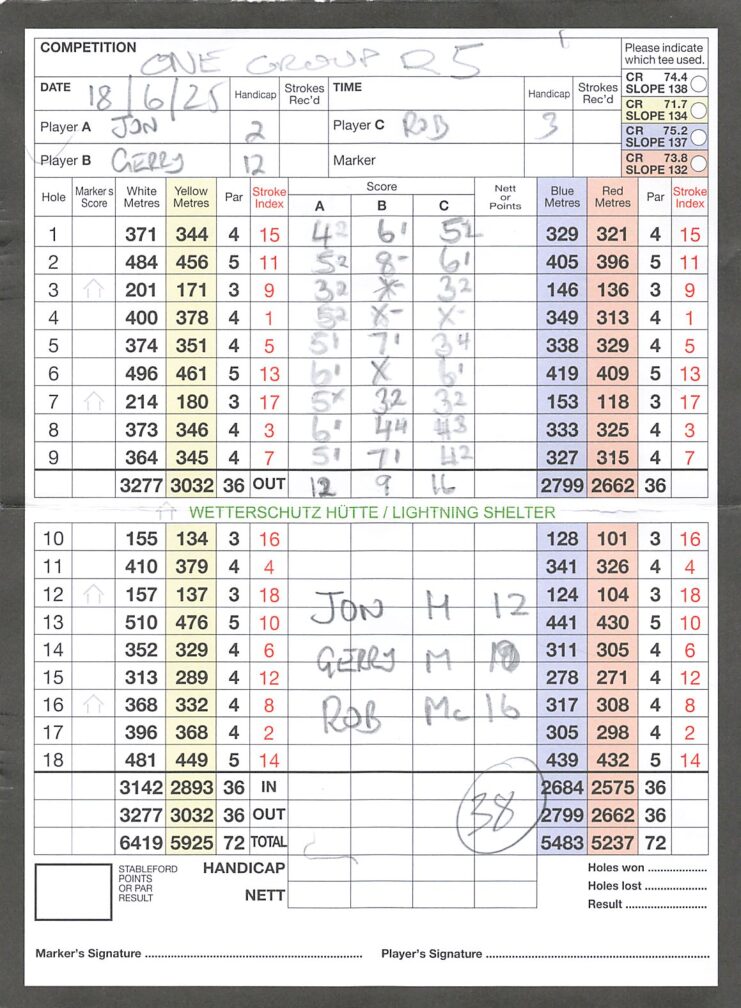 COMPETITION ONE GROUP R5
Please indicate which tee used.
DATE 18/6/25 Handicap Strokes Rec'd TIME Handicap Strokes Rec'd
CR 74.4 SLOPE 138
CR 71.7 SLOPE 134
CR 75.2 SLOPE 137
CR 73.8 SLOPE 132
Player A JON 2 Player C ROB 3
Player B GERRY 12 Marker
Hole Marker's Score White Metres Yellow Metres Par Stroke Index Score A B C Nett or Points Blue Metres Red Metres Par Stroke Index
1 371 344 4 15 4 2 6 1 5 2 329 321 4 15
2 484 456 5 11 5 2 8 - 6 1 405 396 5 11
3 201 171 3 9 3 2 X - 3 2 146 136 3 9
4 400 378 4 1 5 2 X - X - 349 313 4 1
5 374 351 4 5 5 1 7 1 3 4 338 329 4 5
6 496 461 5 13 6 1 X 6 1 419 409 5 13
7 214 180 3 17 5 x 3 2 3 2 153 118 3 17
8 373 346 4 3 6 1 4 4 4 3 333 325 4 3
9 364 345 4 7 5 1 7 1 4 2 327 315 4 7
3277 3032 36 OUT 12 9 16 2799 2662 36
WETTERSCHUTZ HÜTTE / LIGHTNING SHELTER
10 155 134 3 16 128 101 3 16
11 410 379 4 4 341 326 4 4
12 157 137 3 18 124 104 3 18
13 510 476 5 10 JON H 12 441 430 5 10
14 352 329 4 6 GERRY M 311 305 4 6
15 313 289 4 12 278 271 4 12
16 368 332 4 8 ROB Mc 16 317 308 4 8
17 396 368 4 2 305 298 4 2
18 481 449 5 14 439 432 5 14
3142 2893 36 IN 2684 2575 36
3277 3032 36 OUT 38 2799 2662 36
6419 5925 72 TOTAL 5483 5237 72
STABLEFORD POINTS OR PAR RESULT
HANDICAP
NETT
Holes won ..................
Holes lost ..................
Result ........................
Marker's Signature ........................................................ Player's Signature ........................................................